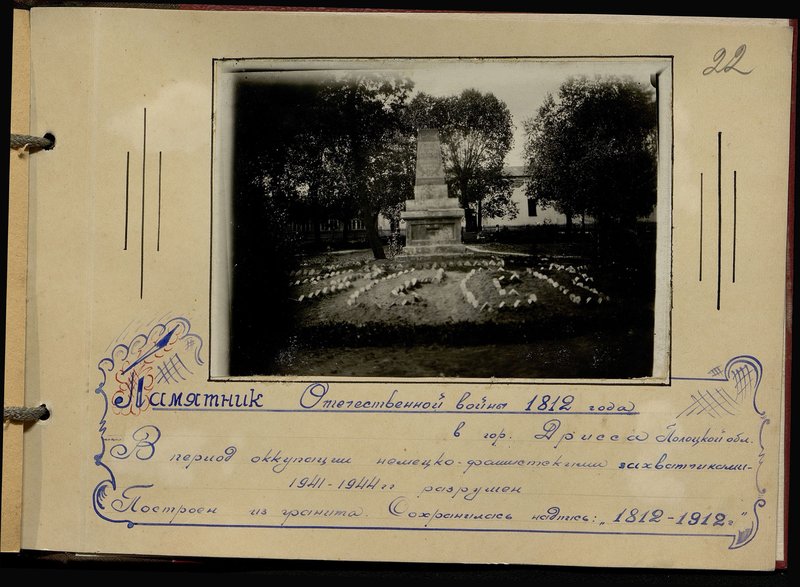 22
Памятник Отечественной войны 1812 года
в гор. Дрисса Полоцкой обл.
В период оккупации немецко-фашистскими захватчиками-
1941-1944 гг разрушен
Построен из гранита. Сохранилась надпись: „1812-1912 г"